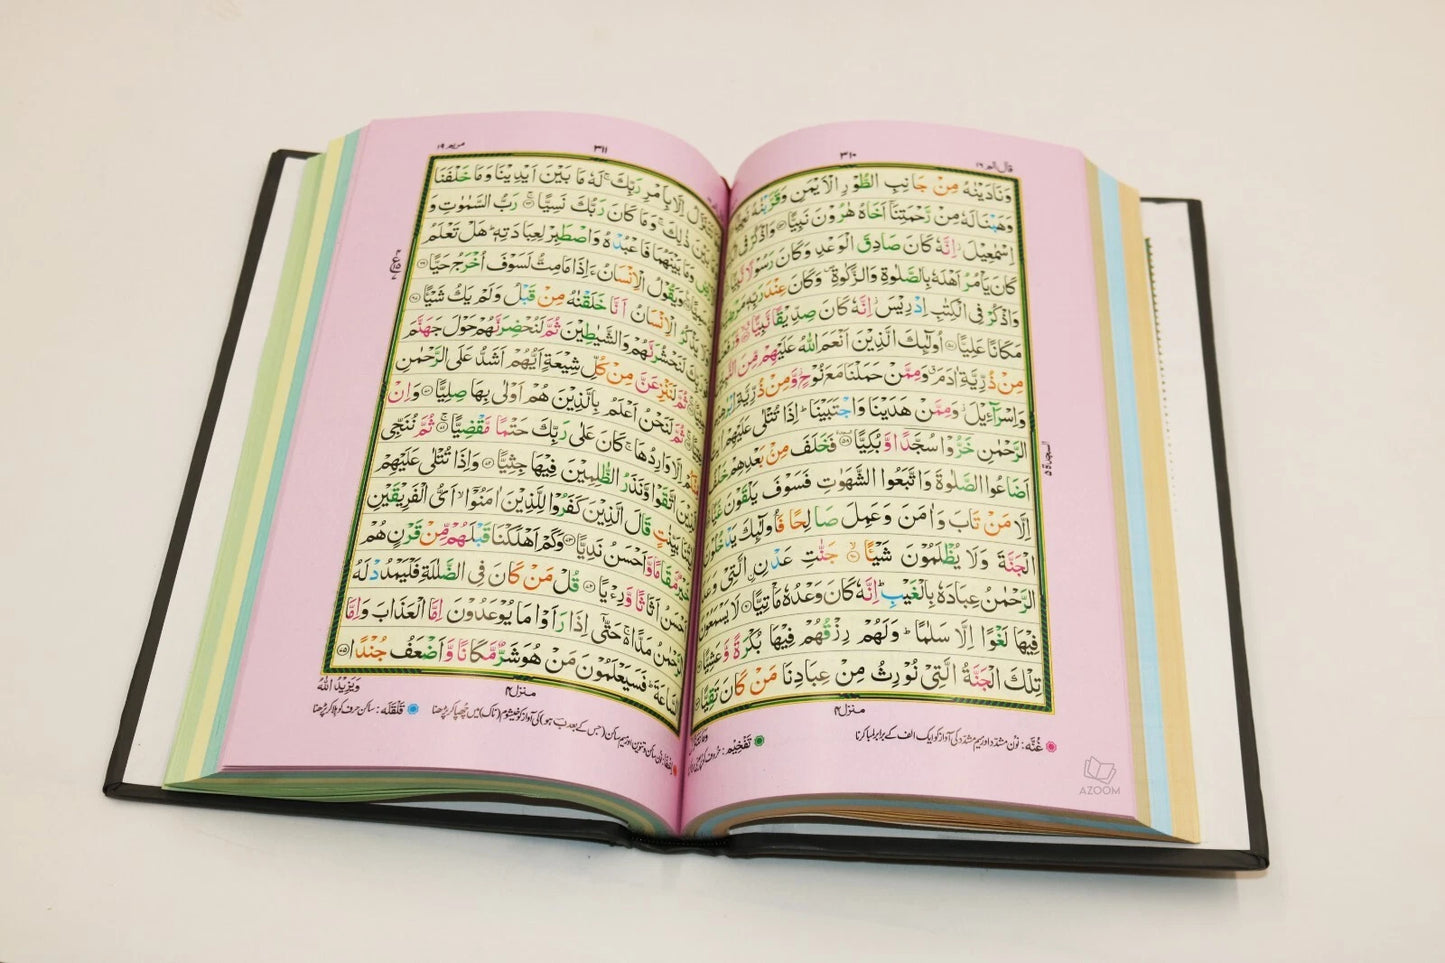 قال الم ١٦
٣١٠
وَنَادَيْنٰهُ مِنْ جَانِبِ الطُّوْرِ الْاَيْمَنِ وَقَرَّبْنٰهُ
وَوَهَبْنَا لَهٗ مِنْ رَّحْمَتِنَاۤ اَخَاهُ هٰرُوْنَ نَبِيًّا ۝ وَاذْكُرْ فِى
اِسْمٰعِيْلَ ؗ اِنَّهٗ كَانَ صَادِقَ الْوَعْدِ وَكَانَ رَسُوْلًا
كَانَ يَاْمُرُ اَهْلَهٗ بِالصَّلٰوةِ وَالزَّكٰوةِ ۪ وَكَانَ عِنْدَ رَبِّهٖ
وَاذْكُرْ فِى الْكِتٰبِ اِدْرِيْسَ ؗ اِنَّهٗ كَانَ صِدِّيْقًا نَّبِيًّا
مَكَانًا عَلِيًّا ۝ اُولٰٓئِكَ الَّذِيْنَ اَنْعَمَ اللّٰهُ عَلَيْهِمْ مِّنَ
مِنْ ذُرِّيَّةِ اٰدَمَ ۗ وَمِمَّنْ حَمَلْنَا مَعَ نُوْحٍ ؗ وَّمِنْ ذُرِّيَّةِ
وَاِسْرَآءِيْلَ ؗ وَمِمَّنْ هَدَيْنَا وَاجْتَبَيْنَا ؕ اِذَا تُتْلٰى عَلَيْهِمْ
الرَّحْمٰنِ خَرُّوْا سُجَّدًا وَّبُكِيًّا ۝٥٨ فَخَلَفَ مِنْۢ بَعْدِهِمْ
اَضَاعُوا الصَّلٰوةَ وَاتَّبَعُوا الشَّهَوٰتِ فَسَوْفَ يَلْقَوْنَ
اِلَّا مَنْ تَابَ وَاٰمَنَ وَعَمِلَ صَالِحًا فَاُولٰٓئِكَ يَدْخُلُوْنَ
الْجَنَّةَ وَلَا يُظْلَمُوْنَ شَيْـًٔا ۝ جَنّٰتِ عَدْنِ ِۨالَّتِىْ
الرَّحْمٰنُ عِبَادَهٗ بِالْغَيْبِ ؕ اِنَّهٗ كَانَ وَعْدُهٗ مَاْتِيًّا ۝ لَا يَسْمَعُوْنَ
فِيْهَا لَغْوًا اِلَّا سَلٰمًا ؕ وَلَهُمْ رِزْقُهُمْ فِيْهَا بُكْرَةً وَّعَشِيًّا
تِلْكَ الْجَنَّةُ الَّتِىْ نُوْرِثُ مِنْ عِبَادِنَا مَنْ كَانَ تَقِيًّا
السجدة ٥
منزل ٤
غُنَّه: نون مشدّد اور میم مشدّد کی آواز کو ایک الف کے برابر لمبا کرنا
تَفْخِیْم: حروف کو
AZOOM
مريم ١٩
٣١١
نَتَنَزَّلُ اِلَّا بِاَمْرِ رَبِّكَ ۚ لَهٗ مَا بَيْنَ اَيْدِيْنَا وَمَا خَلْفَنَا
بَيْنَ ذٰلِكَ ۚ وَمَا كَانَ رَبُّكَ نَسِيًّا ۝ رَبُّ السَّمٰوٰتِ وَ
وَمَا بَيْنَهُمَا فَاعْبُدْهُ وَاصْطَبِرْ لِعِبَادَتِهٖ ؕ هَلْ تَعْلَمُ
وَيَقُوْلُ الْاِنْسَانُ ءَاِذَا مَا مِتُّ لَسَوْفَ اُخْرَجُ حَيًّا
يَذْكُرُ الْاِنْسَانُ اَنَّا خَلَقْنٰهُ مِنْ قَبْلُ وَلَمْ يَكُ شَيْـًٔا
لَنَحْشُرَنَّهُمْ وَالشَّيٰطِيْنَ ثُمَّ لَنُحْضِرَنَّهُمْ حَوْلَ جَهَنَّمَ
ثُمَّ لَنَنْزِعَنَّ مِنْ كُلِّ شِيْعَةٍ اَيُّهُمْ اَشَدُّ عَلَى الرَّحْمٰنِ
ثُمَّ لَنَحْنُ اَعْلَمُ بِالَّذِيْنَ هُمْ اَوْلٰى بِهَا صِلِيًّا ۝ وَاِنْ
اِلَّا وَارِدُهَا ۚ كَانَ عَلٰى رَبِّكَ حَتْمًا مَّقْضِيًّا ۝ ثُمَّ نُنَجِّى
اتَّقَوْا وَّنَذَرُ الظّٰلِمِيْنَ فِيْهَا جِثِيًّا ۝ وَاِذَا تُتْلٰى عَلَيْهِمْ
بَيِّنٰتٍ قَالَ الَّذِيْنَ كَفَرُوْا لِلَّذِيْنَ اٰمَنُوْۤا ۙ اَىُّ الْفَرِيْقَيْنِ
خَيْرٌ مَّقَامًا وَّاَحْسَنُ نَدِيًّا ۝ وَكَمْ اَهْلَكْنَا قَبْلَهُمْ مِّنْ قَرْنٍ هُمْ
اَحْسَنُ اَثَاثًا وَّرِءْيًا ۝ قُلْ مَنْ كَانَ فِى الضَّلٰلَةِ فَلْيَمْدُدْ لَهُ
الرَّحْمٰنُ مَدًّا ۚ حَتّٰٓى اِذَا رَاَوْا مَا يُوْعَدُوْنَ اِمَّا الْعَذَابَ وَاِمَّا
السَّاعَةَ ؕ فَسَيَعْلَمُوْنَ مَنْ هُوَ شَرٌّ مَّكَانًا وَّاَضْعَفُ جُنْدًا
وَيَزِيْدُ اللّٰهُ
منزل ٤
قَلْقَلَه: ساکن حرف کو ہلا کر پڑھنا